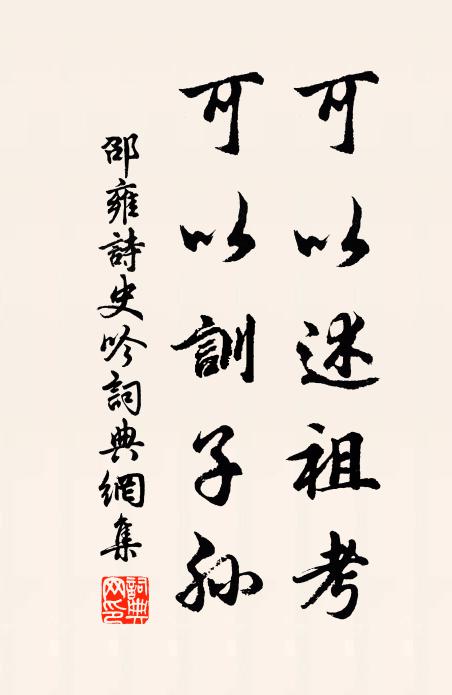 可以述祖考
可以訓子孫
邵雍詩史吟詞典網集
詞典網印